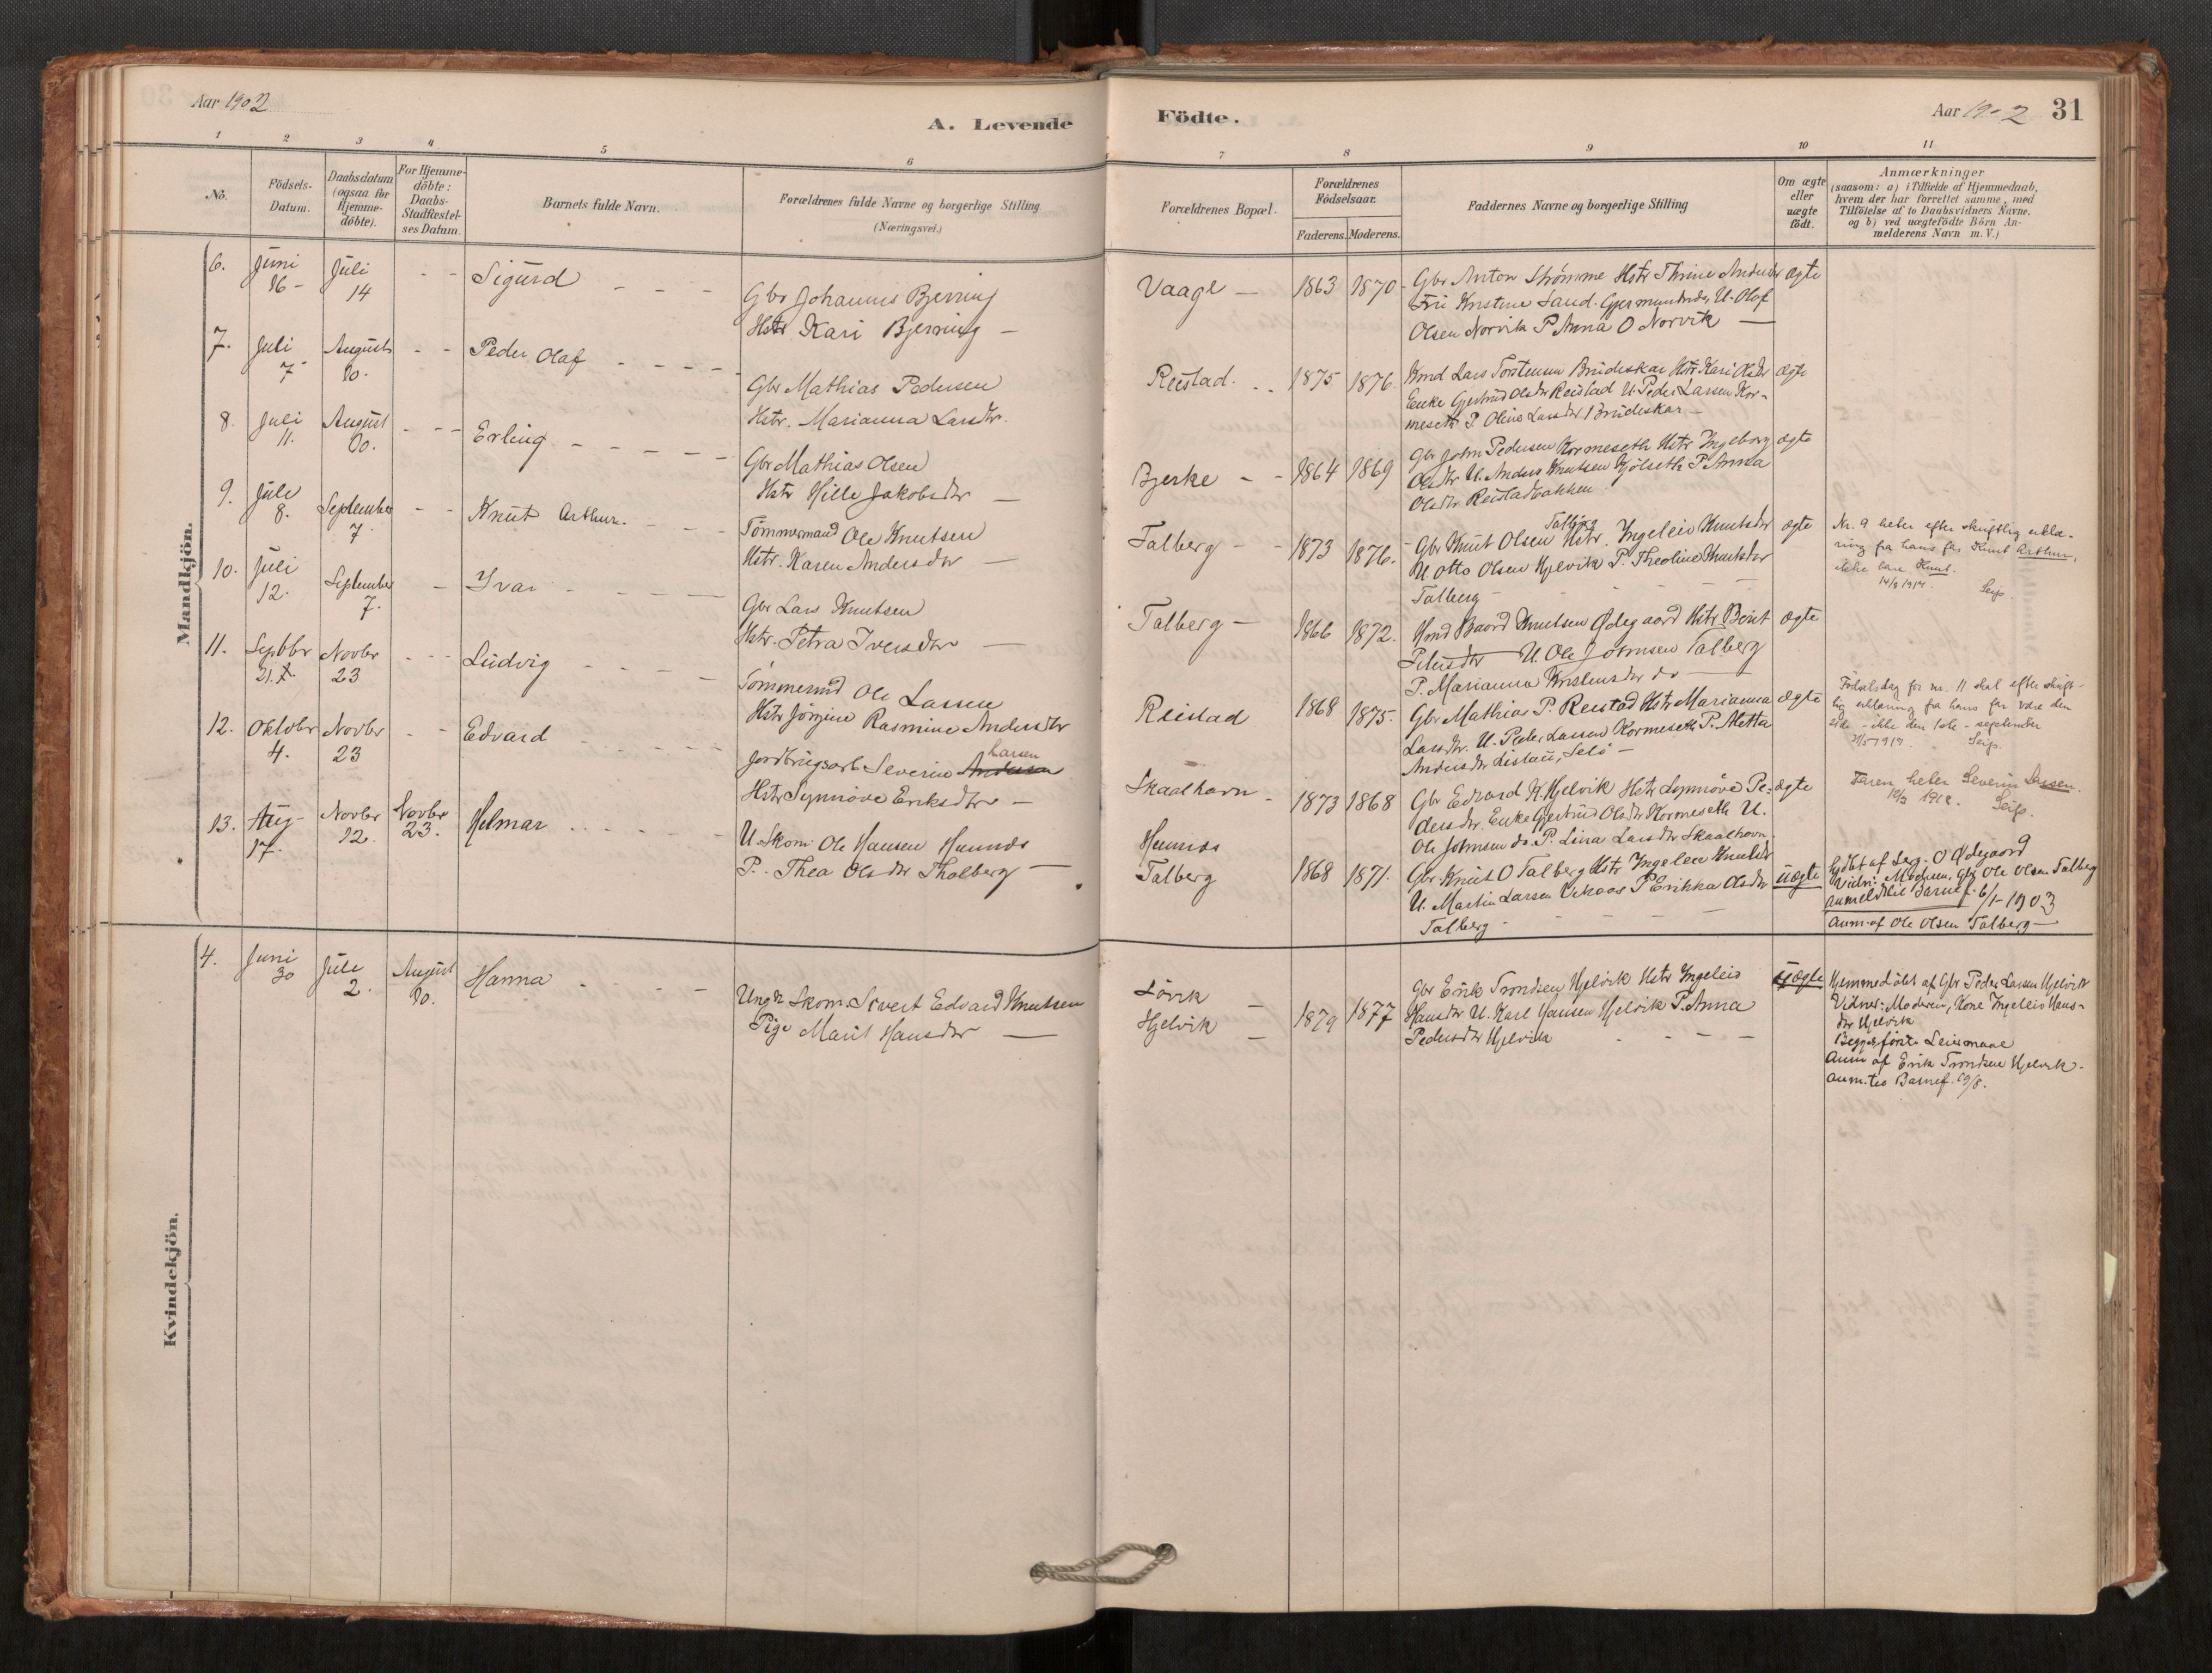 Aar 1902
A. Levende
Födte.
Aar 1902
31
1 2 3 4 5 6 7 8 9 10 11
No.
Födsels-
Datum.
Daabsdatum
(ogsaa for
Hjemme-
döbte).
For Hjemme-
döbte:
Daabs-
Stadfæstel-
ses Datum.
Barnets fulde Navn.
Forældrenes fulde Navne og borgerlige Stilling
(Næringsvei.)
Forældrenes Bopæl.
Forældrenes
Födselsaar.
Faderens. Moderens.
Faddernes Navne og borgerlige Stilling
Om ægte
eller
uægte
födt.
Anmærkninger
(saasom: a) i Tilfælde af Hjemmedaab,
hvem der har forrettet samme, med
Tilföielse af to Daabsvidners Navne,
og b) ved uægtefödte Börn An-
melderens Navn m. V.)
Mandkjön.
6. Juni 16 - Juli 14 - - Sigurd - - -
Gbr Johannes Bjerring
Hstr Kari Bjerring -
Vaage - 1863 1870
Gbr Anton Strømme Hstr Thrine Andersdr ægte
Fru Kristine Sand. Gjermundnes, U. Olaf
Olsen Norvik P Anna O Norvik -
7. Juli 7 August 10. - - Peder Olaf - - - -
Gbr Mathias Pedersen
Hstr. Marianna Larsdtr.
Reistad. 1875 1876
Kmd Lars Torstensen Brudeskar Hstr Kari Olsdr ægte
Enke Gjertrud Olsdtr Reistad U. Peder Larsen Kor-
meseth P. Oline Larsdtr Brudeskar -
8. Juli 11. August 10. - - - Erling - - - -
Gbr Mathias Olsen
Hstr Hille Jakobsdtr -
Bjerke - - 1864 1869
Gbr John Pedersen Kormeseth Hstr Ingeborg ægte
Olsdtr U. Anders Knutsen Kjølseth P. Anna
Olsdtr. Reistadbakken
9. Juli 8. September 7. - - Knut Arthur. - - -
Tømmermand Ole Knutsen
Hstr. Karen Andersdtr -
Talberg - - 1873 1876.
Talberg
Gbr Knut Olsen Hstr. Ingeleiv Knutsdtr ægte
U Otto Olsen Hjelvik P. Theoline Knutsdtr
Talberg - - - -
Nr. 9 heter efter skriftlig erklæ-
ring fra hans far Knut Arthur,
ikke bare Knut.
14/9 1917. Seip
10. Juli 12. September 7. - Ivar - - - -
Gbr Lars Knutsen
Hstr. Petra Iversdtr -
Talberg - 1866 1872.
Kmd Baard Knutsen Ødegaard Hstr. Berit ægte
Petersdtr U. Ole Johnsen Talberg
P. Marianna Kristensdtr do -
11. Septbr 21. 1. Novbr 23 - - - Ludvig - - - -
Tømmermd Ole Larsen
Hstr Jørgine Rasmine Andersdtr
Reistad 1868 1875.
Gbr Mathias P. Reistad Hstr Marianna ægte
Larsdtr. U. Peder Larsen Kormeseth P. Aletta
Andersdtr Listau, Selö -
Fødselsdag for nr. 11 skal efter skrift-
lig erklæring fra hans far være den
21de - ikke den 1ste - september
21/5 1917. Seip.
12. Oktobr 4. Novbr 23 - - Edvard - - - - -
Larsen
Jordbrugsarb. Severin Andersen
Hstr Synnøve Eriksdtr -
Skaalhavn - 1873 1868
Gbr Edvard K. Hjelvik Hstr Synnøve Pe- ægte
dersdtr. Enke Gjertrud Olsdtr Kormeseth U.
Ole Johnsen do. P. Lina Larsdtr Skaalhavn.
Faren heter Severin Larsen.
1912. Seip.
13. Aug- 17. Novbr 12. Novbr 23. Helmar - - - -
U. Skom. Ole Hansen Hunnes
P. Thea Olsdtr Thalberg -
Hunnes
Talberg 1868 1871.
Gbr. Knut O Talberg Hstr Ingeleiv Knutsdtr uægte
U. Martin Larsen P Erikka Olsdtr
Talberg - - - -
hjdbt af O Ødegaard
Vidn: Modren, Gbr Ole Olsen Talberg
anmeldt til Barnef. 6/1-1903
Anm. af Ole Olsen Talberg -
Kvindekjön.
4. Juni 30 Juli 2. August 10. Hanna - - - -
Ungk Skom. Sivert Edvard Knutsen
Pige Marit Hansdtr -
Lövik -
Hjelvik - 1879 1877
Gbr Erik Trondsen Hjelvik Hstr Ingeleiv uægte
Hansdtr U. Karl Hansen Hjelvik P. Anna
Pedersdtr Hjelvik - - -
Hjemmedöbt af Gbr Peder Larsen Hjelvik
Vidner: Moderen, Kone Ingeleiv Hans-
dtr Hjelvik
Begges förste Leiermaal
Anm af Erik Trondsen Hjelvik.
anm. til Barnef. 19/8.